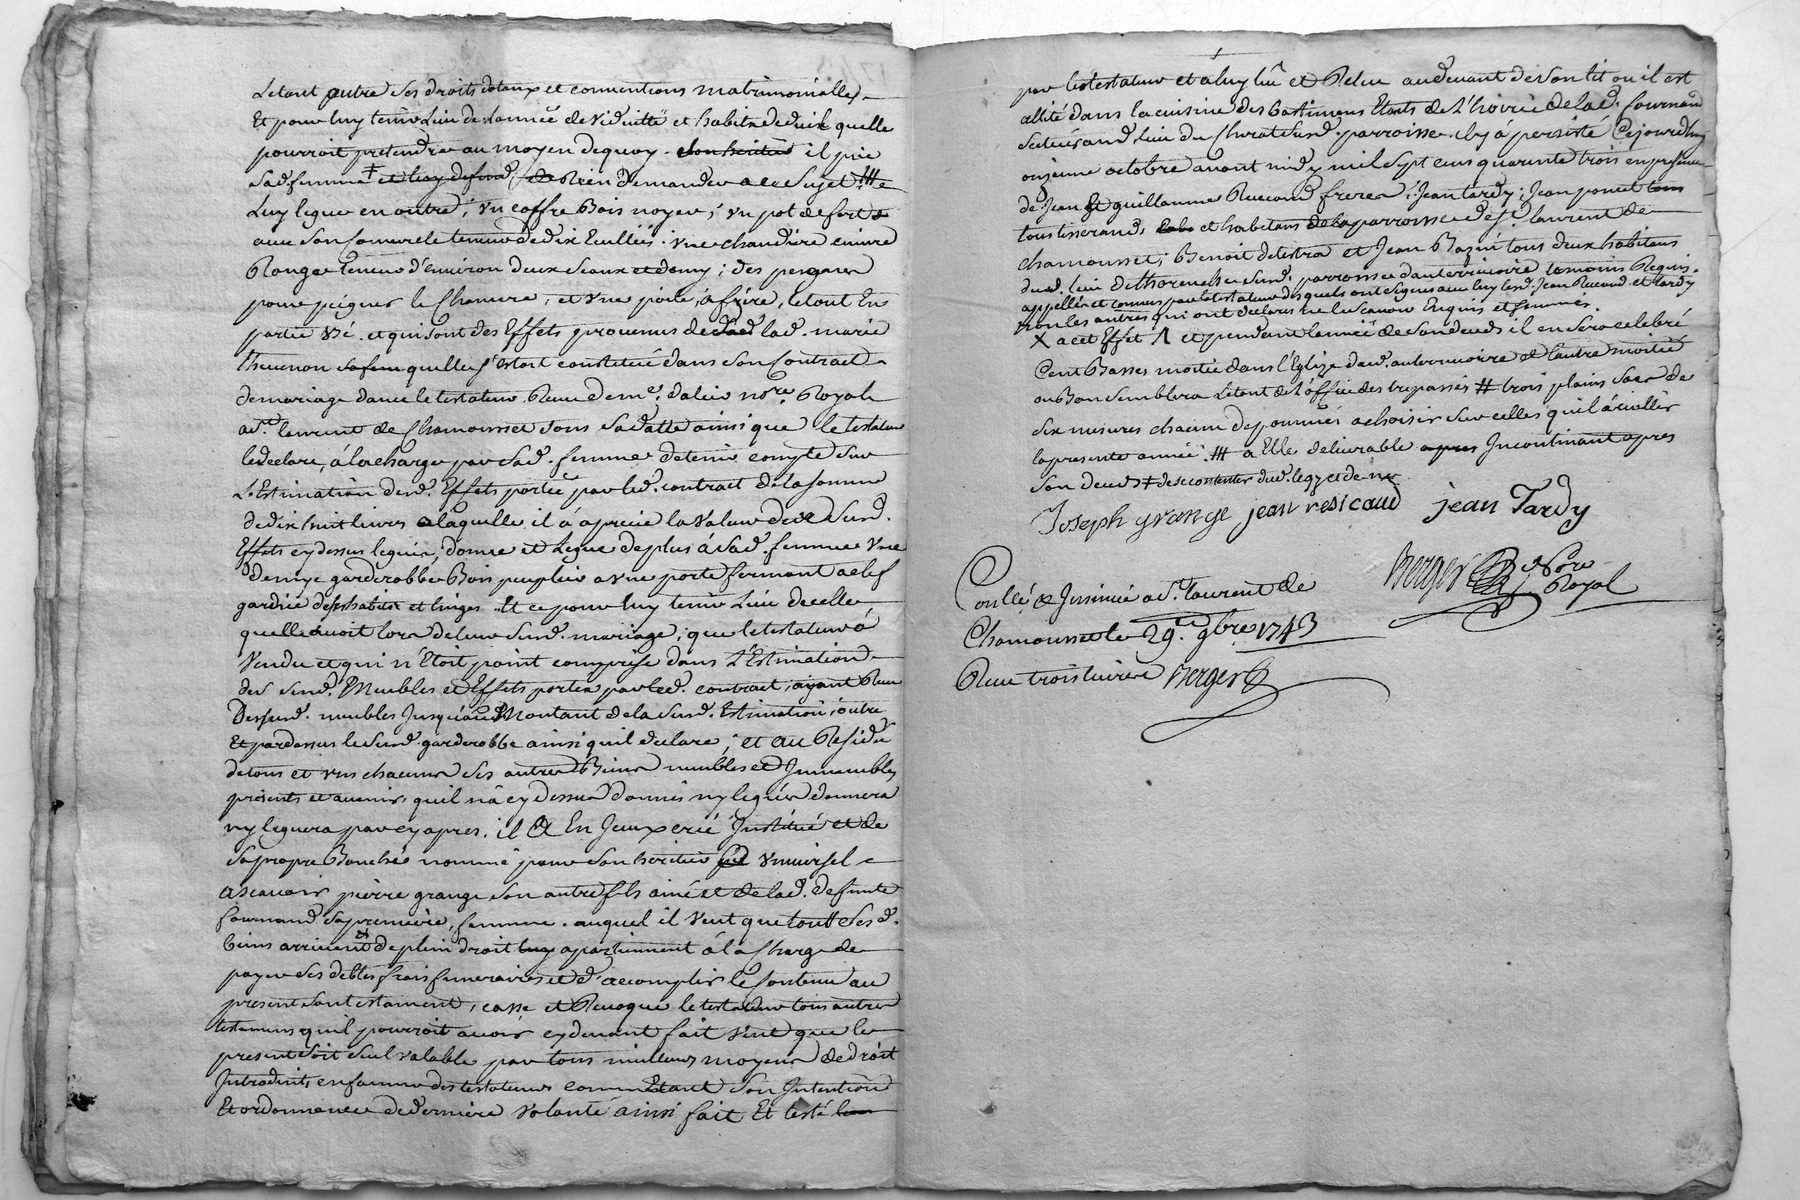 Letout outre ses droits dotaux et conventions matrimonialles
Et pour luy tenir Lieu de Lannée de viduitté et habits de deuil quelle
pourroit pretendre au moyen dequoy il prie
Sad femme de Rien demander a ce Sujet
Luy legue en outre, un coffre Bois noyer, un pot de fert
avec son couvercle teneur de dix Ecullées, une chaudière cuivre
Rouge teneur d'Environ deux Seaux et demy; des peignes
pour peigner le Chanvre, et une poile, a frire, letout En
partie usé, et qui sont des Effets provenus de lad. marie
thevenon sa fem quelle s'estoit constitué dans son Contract
de mariage avec le testateur Receu de me. notre. Royal
a St. laurent de Chamousset sous sa datte ainsi que le testateur
le declare, à la charge par sad. femme detenir compte sur
L'Estimation desd. Effets portée par led. contract de la somme
dedix huit livres a laquelle il à aprecié la valeur de Susd.
Effets cy dessus legués, donne et Legue deplus à sad. femme une
demye garderobbe Bois peuplier a une porte fermant a clef
garnie de ses habits et linges, Et ce pour luy tenir Lieu de celle
quelle avoit lors de leur susd. mariage, que le testateur à
vendu et qui n'Etoit point comprise dans L'Estimation
des susd. Meubles et Effets portés par led. contract, ayant Receu
Desusd. meubles Jusqu'au Montant de la Susd. Estimation, outre
Et pardessus le Susd. garderobbe ainsi quil declare; et au Residu
detous et uns chacuns ses autres Biens meubles et Immeubles
présents et avenir, quil n'a cy dessus donnés ny legués donnera
ny leguera par cy apres, il A Institué et de
sa propre Bouche nommé pour son heritier universel
ascavoir pierre grange son autre fils ainé et de lad. deffunte
fournand sa premiere, femme, auquel il veut que tout sesd.
biens arrivent de plein droit apartiennent à la Charge de
payer ses debtes frais funeraires et d'accomplir le Contenu au
present son testament, casse et Revoque le testateur tous autres
testamens quil pourroit avoir cydevant fait veut que le
present soit seul valable par tous meilleurs moyens de droit
Introduits en faveur des testateurs comme Etant son Intention
Et ordonnance de derniere volonté ainsi fait Et testé
par letestateur et a luy lû et Relu audevant de son lit ou il est
allité dans la cuisine des batimens Etants de L'hoirie de lad. fournand
scitués and. lieu du susd. parroisse. il y à persisté Cejourdhuy
onzieme octobre avant midy mil sept cens quarante trois en presence
de Jean et guillaume frerea, Jean tardy, Jean poncet
tous tisserands et habitans de la parroisse de st laurent de
chamousset, Benoit et Jean tous deux habitans
dud. lieu de susd. parroisse dauterrivoire temoins Requis
appellés et connus par letestateur desquels ont signés avec luy lesd. Jean et tardy
non les autres qui ont declarés ne le scavoir Enquis et sommés
X a cet Effet Λ et pendant lannée de son deceds il en sera celebré
Cent Basses moitié dans l'Eglize dud. auterrivoire et l'autre moitié
ou Bon semblera Letout de l'office des trepassés # trois plains sacs de
six mesures chacun de pommes a choisir sur celles quil à cuillir
la presente année. # a Elle delivrable Incontinant apres
son deceds
Joseph grange jean resicaud jean Tardy
Berger Nore Royal
Conllé & Insinué a St. Laurent de
Chamousset le 29e. 9bre 1743
Receu trois livres Berger